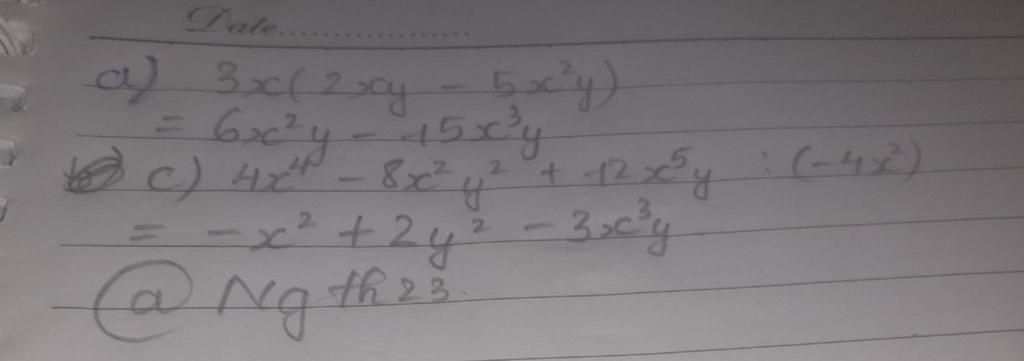 Date..................
a) 3x(2xy - 5x²y)
= 6x²y - 15x³y
c) 4x⁴ - 8x²y² + 12x⁵y : (-4x²)
= -x² + 2y² - 3x³y
@ Ngth23.